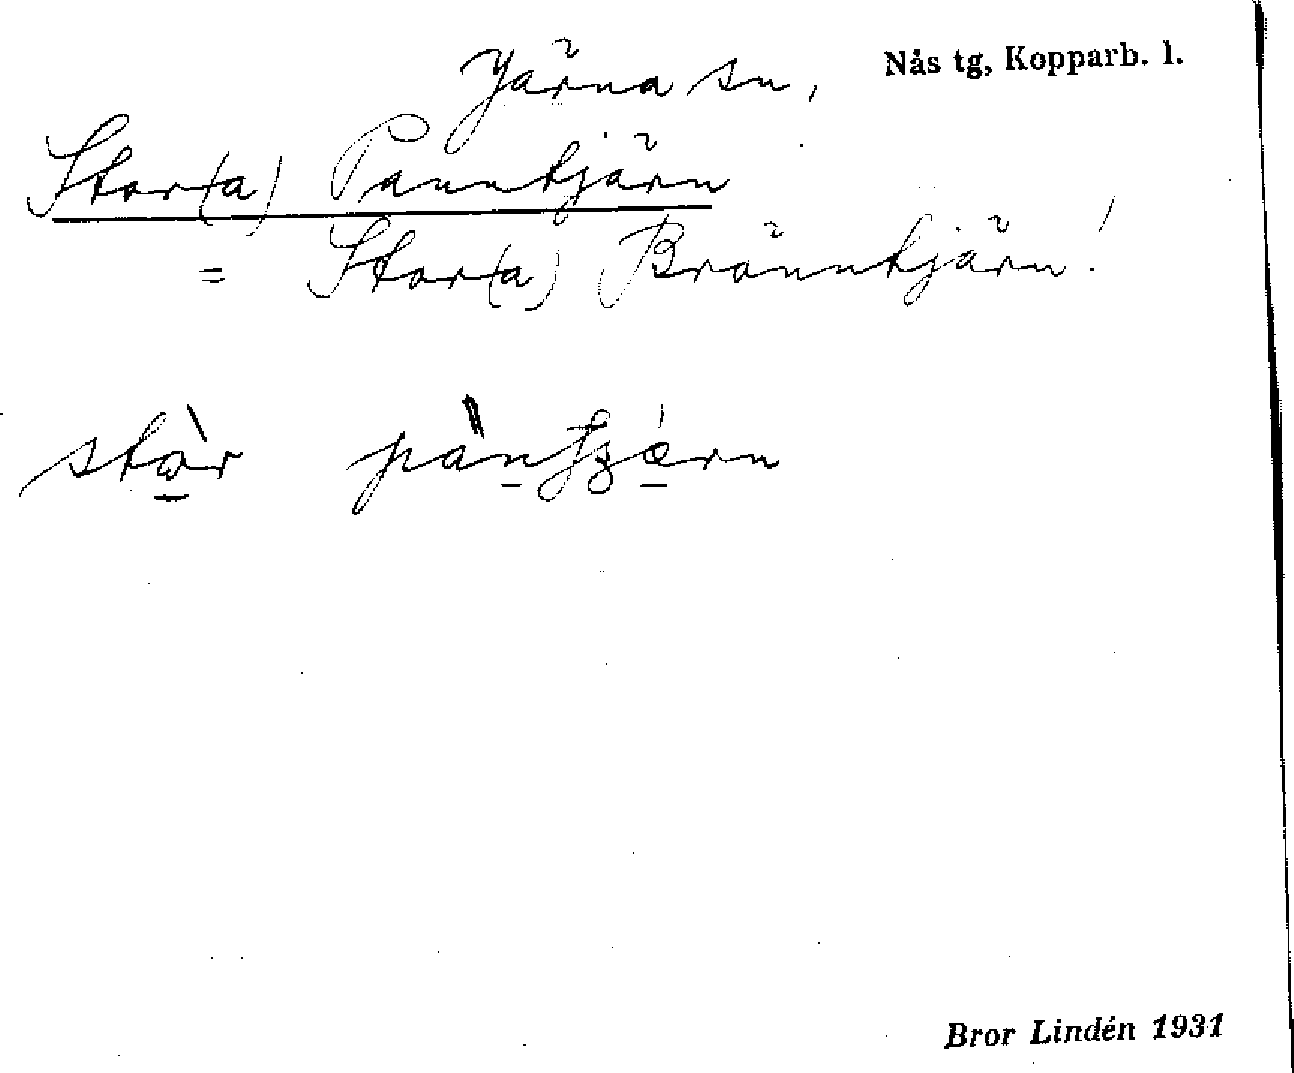 Järna sn, Nås tg, Kopparb. l.
Stor(a) Panntjärn
= Stor(a) Bränntjärn!
stor
Bror Lindén 1931